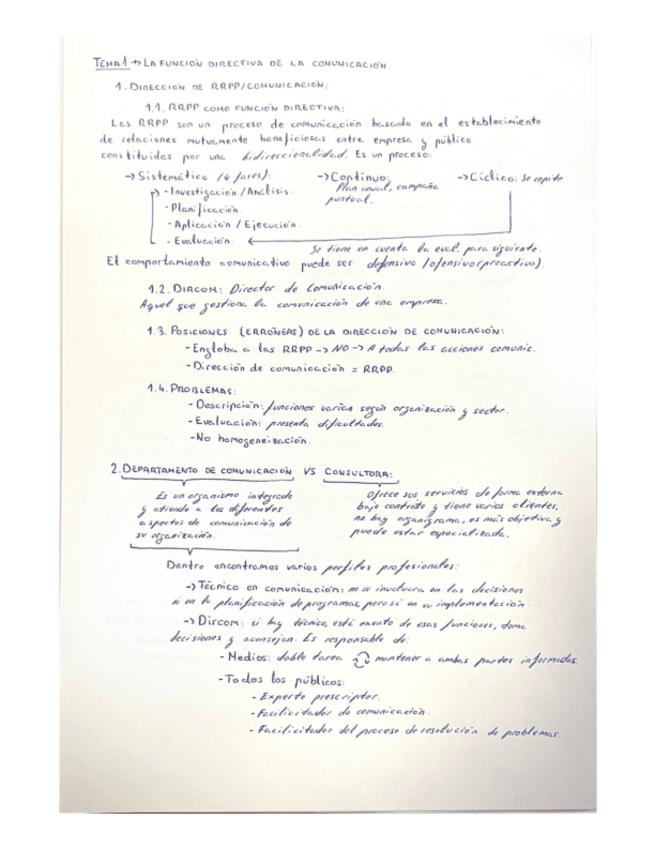 TEMA 1 → LA FUNCIÓN DIRECTIVA DE LA COMUNICACIÓN.
1. DIRECCIÓN DE RRPP/COMUNICACIÓN:
1.1. RRPP COMO FUNCIÓN DIRECTIVA:
Las RRPP son un proceso de comunicación basado en el establecimiento
de relaciones mutuamente beneficiosas entre empresa y público
constituidas por una bidireccionalidad. Es un proceso:
→ Sistemático (4 fases): → Continuo: → Cíclico: se repite
- Investigación / Análisis. Plan anual, campaña
- Planificación. puntual.
- Aplicación / Ejecución.
- Evaluación.
Se tiene en cuenta la eval. para siguiente.
El comportamiento comunicativo puede ser defensivo / ofensivo (proactivo).
1.2. DIRCOM: Director de Comunicación.
Aquel que gestiona la comunicación de una empresa.
1.3. POSICIONES (ERRÓNEAS) DE LA DIRECCIÓN DE COMUNICACIÓN:
- Engloba a las RRPP → NO → A todas las acciones comunic.
- Dirección de comunicación = RRPP.
1.4. PROBLEMAS:
- Descripción: funciones varían según organización y sector.
- Evaluación: presenta dificultades.
- No homogeneización.
2. DEPARTAMENTO DE COMUNICACIÓN VS CONSULTORA:
Es un organismo integrado Ofrece sus servicios de forma externa
y atiende a los diferentes bajo contrato y tiene varios clientes,
aspectos de comunicación de no hay organigrama, es más objetiva y
su organización. puede estar especializada.
Dentro encontramos varios perfiles profesionales:
→ Técnico en comunicación: no se involucra en las decisiones
ni en la planificación de programas, pero sí en su implementación.
→ Dircom: si hay técnico, está exento de esas funciones, toma
decisiones y aconsejan. Es responsable de:
- Medios: doble tarea mantener a ambas partes informadas.
- Todos los públicos:
- Experto prescriptor.
- Facilicitador de comunicación.
- Facilicitador del proceso de resolución de problemas.